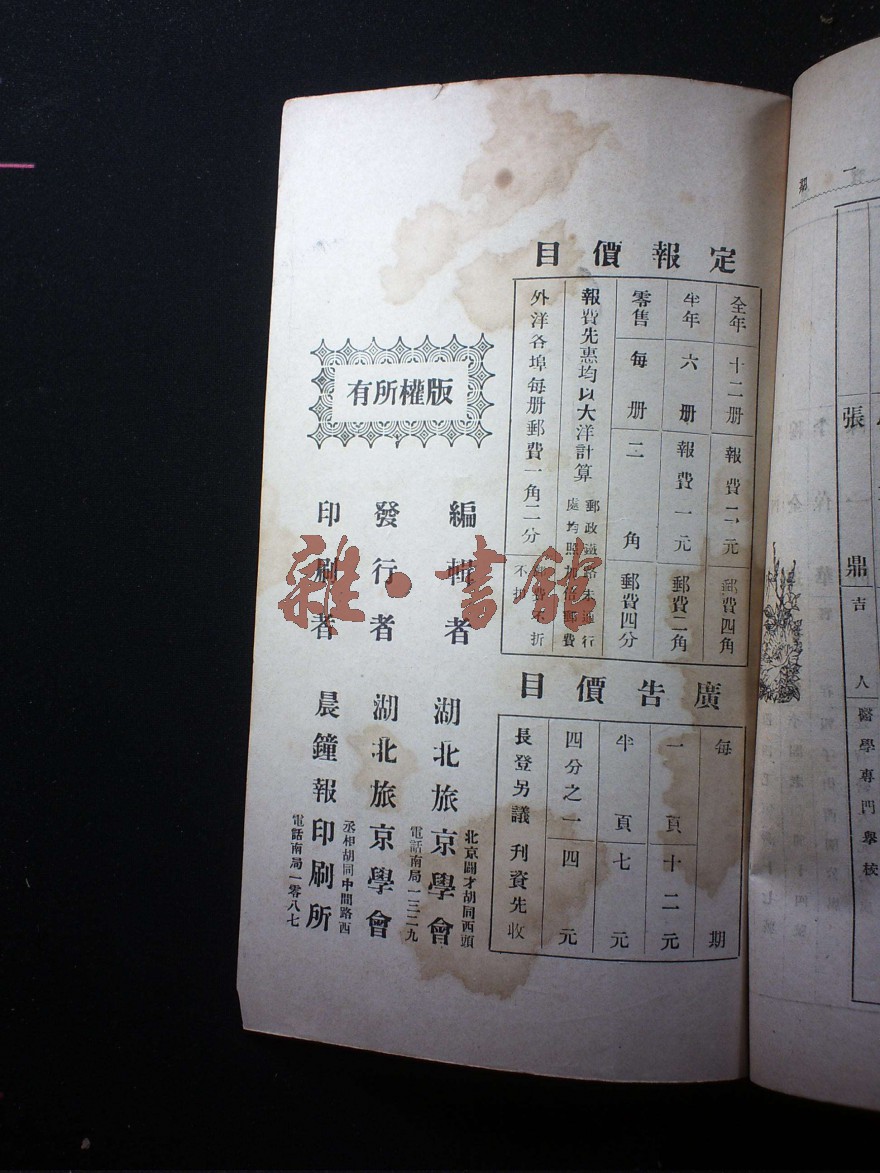 定報價目
全年 十二册 報費二元 郵費四角
半年 六册 報費一元 郵費二角
零售 每册 二角 郵費四分
報費先惠均以大洋計算
郵政鐵路未通行
處均照加倍郵費
外洋各埠每册郵費一角二分
費不折
不扣
廣告價目
每期
一頁 十二元
半頁 七元
四分之一 四元
長登另議 刊資先收
版權所有
編輯者 湖北旅京學會
北京闢才胡同西頭
電話南局一三二九
發行者 湖北旅京學會
印刷者 晨鐘報印刷所
丞相胡同中間路西
電話南局一零八七
雜·書館
一期
張
鼎
吉人
醫學專門學校